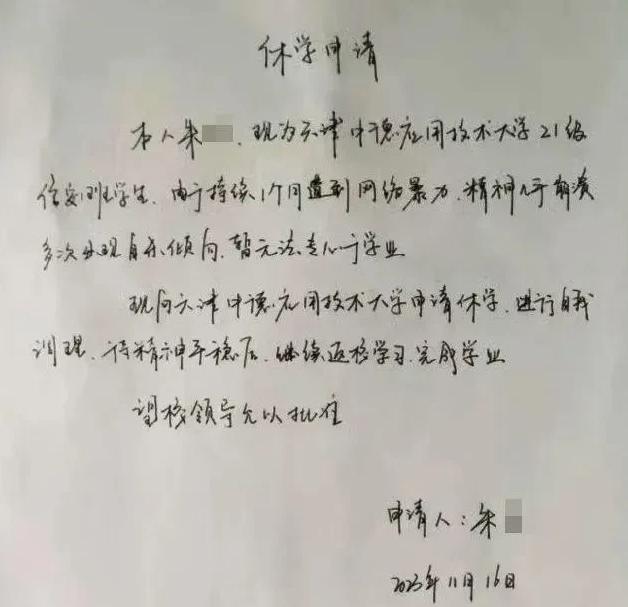 休学申请
本人朱 、现为天津中德应用技术大学21级
信安班学生.由于持续1个月遭到网络暴力.精神几乎崩溃
多次出现自杀倾向.暂无法专心于学业
现向天津中德应用技术大学申请休学.进行自我
调理.待精神平稳后.继续返校学习.完成学业
望校领导允以批准
申请人:朱
2023年11月16日